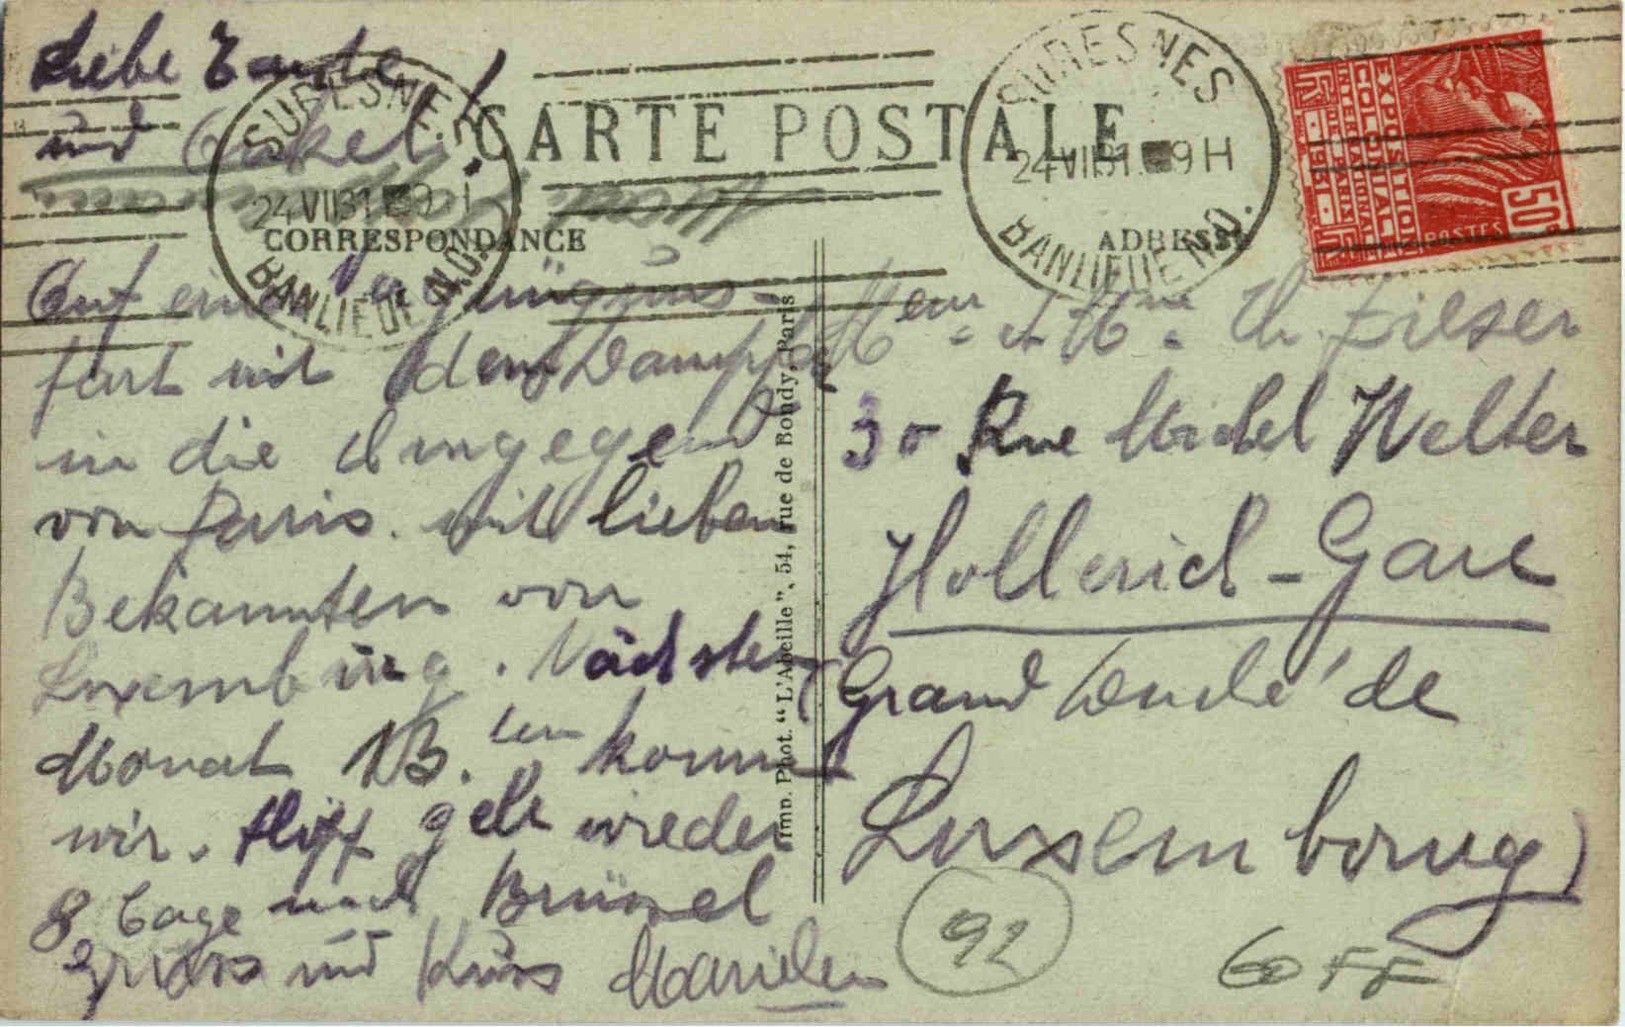 Liebe Tante
und Onkel!
CARTE POSTALE
CORRESPONDANCE
ADRESSE
SURESNES
24 VII 31 9H
BANLIEUE N.O.
SURESNES
24 VII 31 9H
BANLIEUE N.O.
EXPOSITION
COLONIALE
INTERNATIONALE
PARIS
1931
POSTES
50c
Auf eine Vergnügüns-
fart mit dem Dampfer
in die Umgegend
von Paris. mit lieben
Bekannten von
Luxembürg. Nächsten
Monat 13.ten kommt
wir. geht wieder
8 Tage nach Brüssel
Grüss und Küss Marichen
Imp. Phot. "L'Abeille", 54, rue de Bondy, Paris
Meur. et Mme. Th. Zieser
30 Rue Michel Welter
Hollerich-Gare
Grand Duché de
Luxembourg
92
60 FF